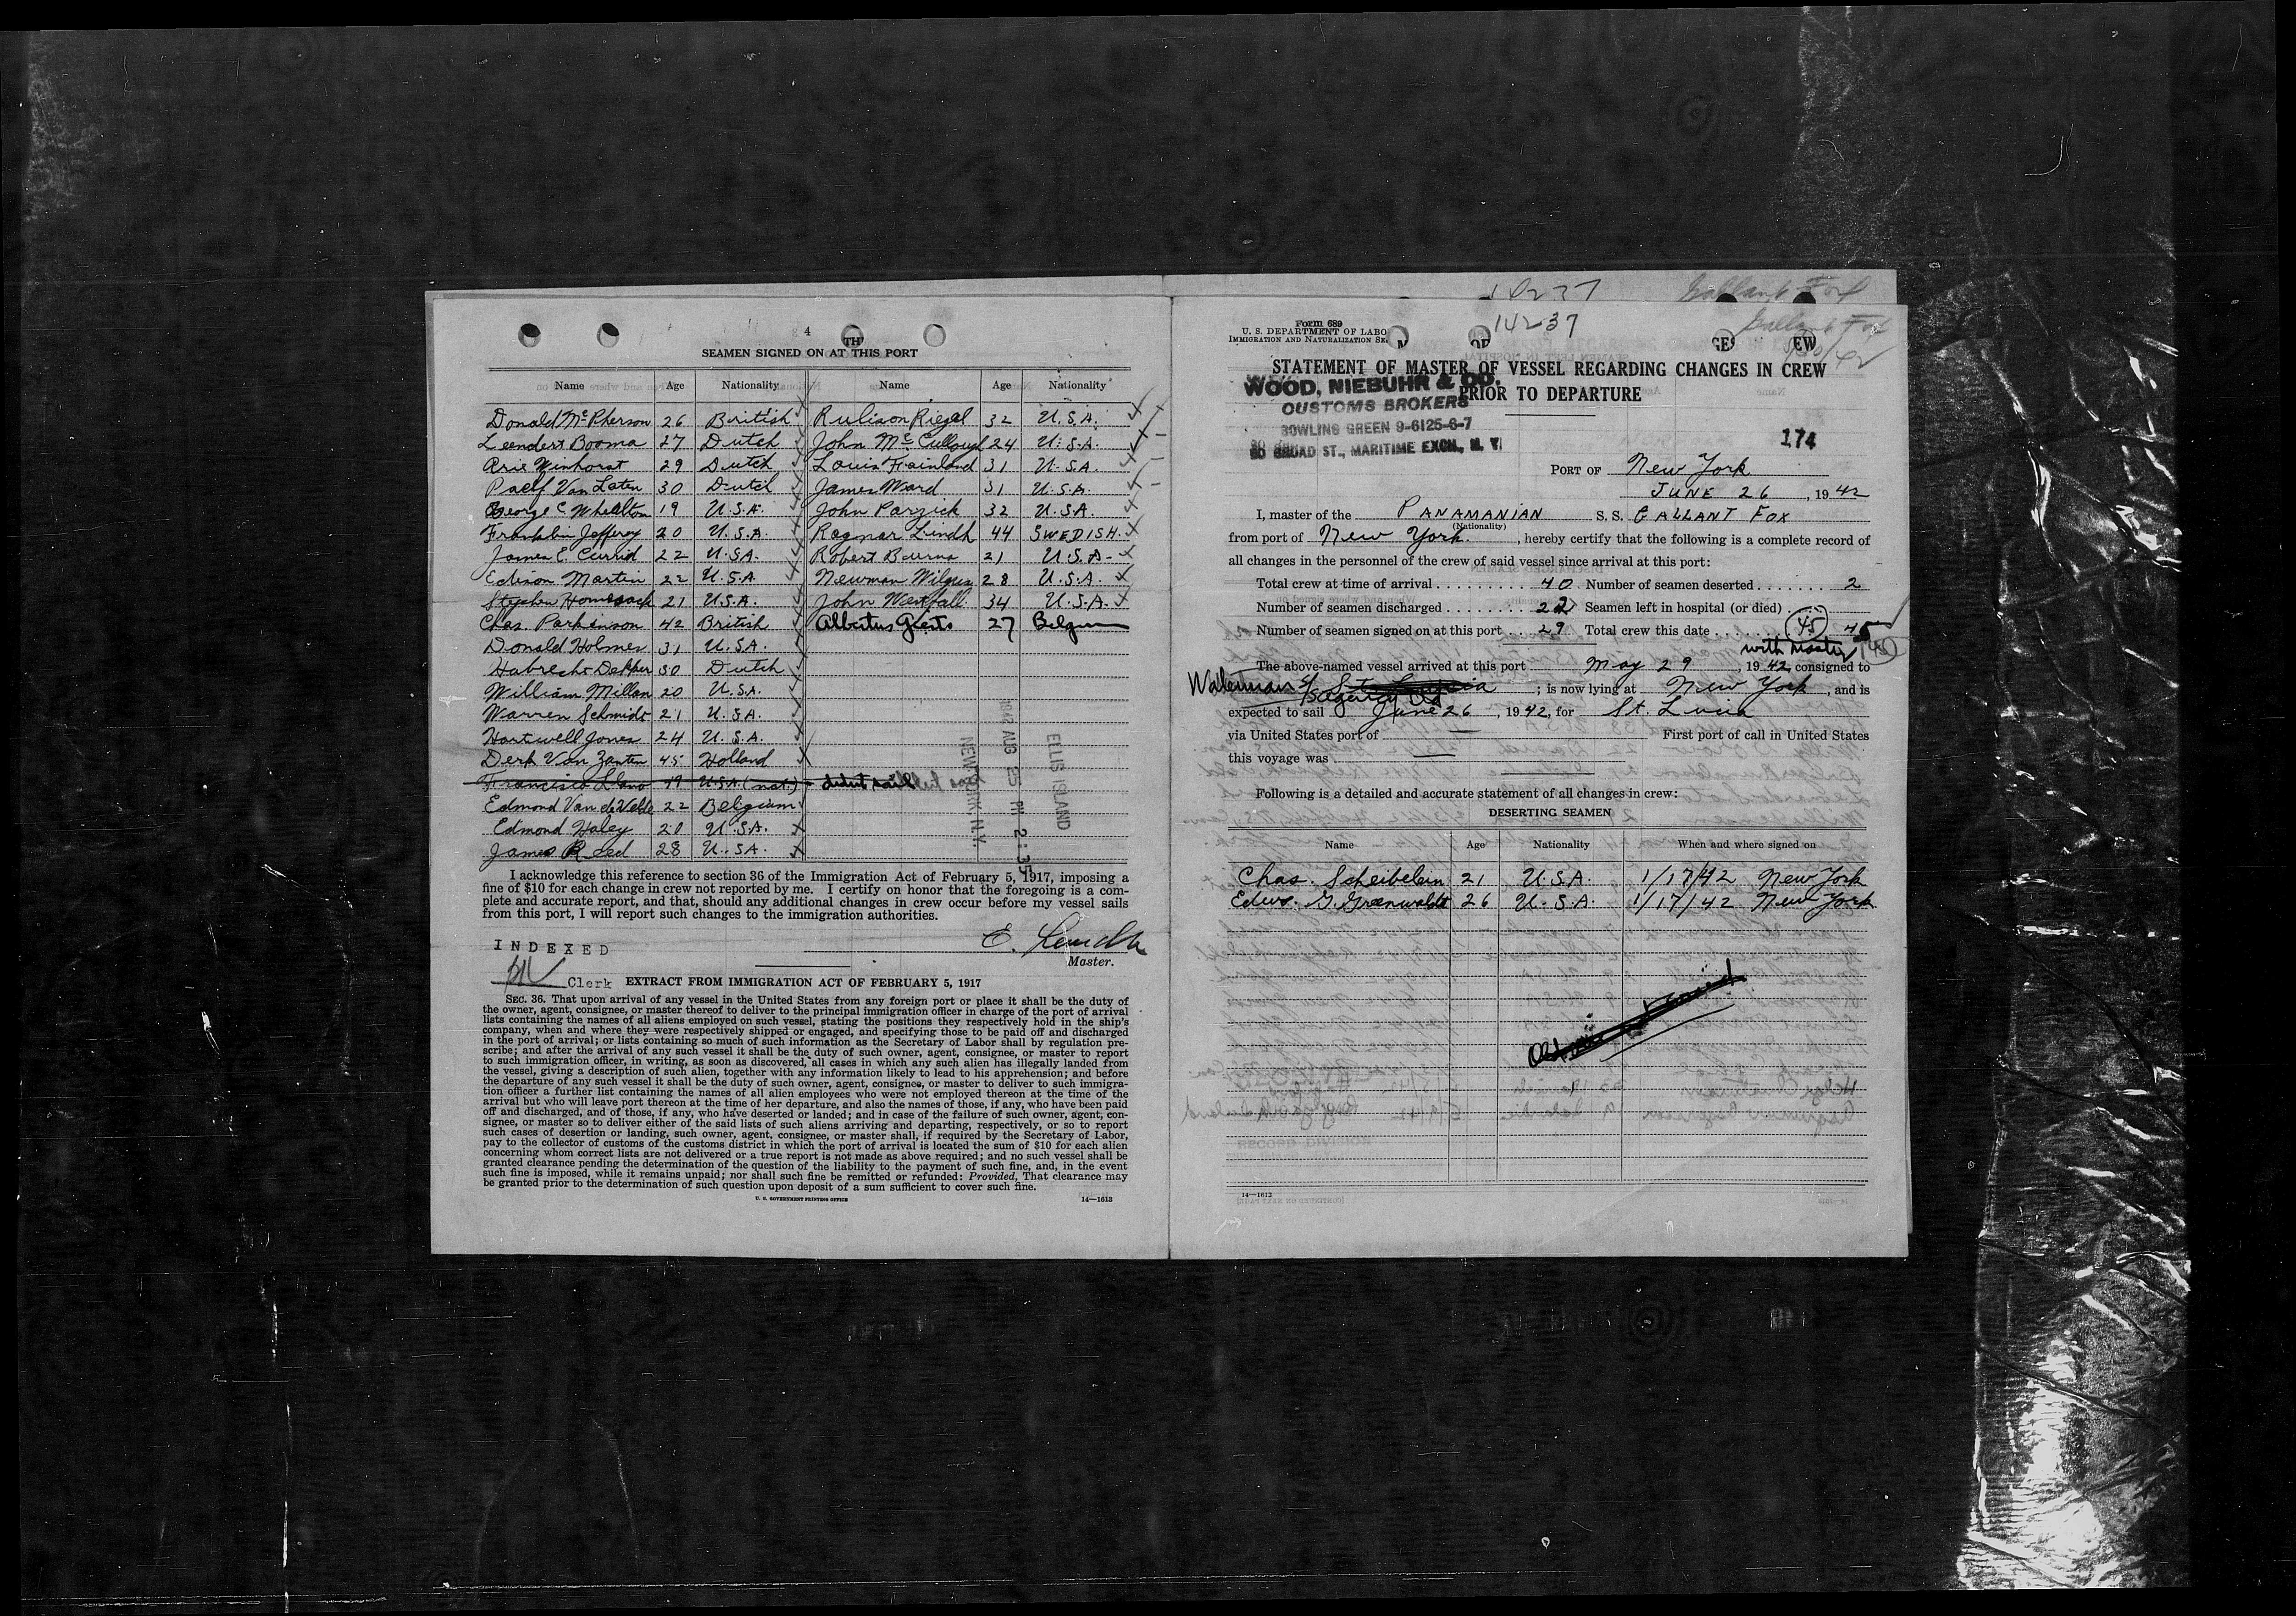 4
SEAMEN SIGNED ON AT THIS PORT
Name Age Nationality Name Age Nationality
Donald McPherson 26 British Rulison Riegel 32 U.S.A.
Leendert Booma 27 Dutch John McCullough 24 U.S.A.
Arie Winhorst 29 Dutch Louis Fainland 31 U.S.A.
Van Laten 30 Dutch James Ward 31 U.S.A.
George C Whealton 19 U.S.A. John Parzick 32 U.S.A.
Franklin Jefferey 20 U.S.A. Ragnar Lindh 44 SWEDISH.
James C. Currid 22 U.S.A. Robert Burns 21 U.S.A.
Edison Martin 22 U.S.A. Newman 28 U.S.A.
Stephen 21 U.S.A. John 34 U.S.A.
Chas. Parkenson 42 British Albertus Geerts 27 Belgium
Donald Holmes 31 U.S.A.
Dekker 30 Dutch
William Millan 20 U.S.A.
Warren Schmidt 21 U.S.A.
Hartwell Jones 24 U.S.A.
Derk Van Zanten 45 Holland
Francisco Llano 49 U.S.A. (nat.) - didnt sail
Edmond Van de Velde 22 Belgium
Edmond Haley 20 U.S.A.
James Reed 28 U.S.A.
NEW YORK N.Y.
1942 AUG 25 PM 2:35
ELLIS ISLAND
I acknowledge this reference to section 36 of the Immigration Act of February 5, 1917, imposing a
fine of $10 for each change in crew not reported by me. I certify on honor that the foregoing is a com-
plete and accurate report, and that, should any additional changes in crew occur before my vessel sails
from this port, I will report such changes to the immigration authorities.
E.
Master.
INDEXED
Clerk
EXTRACT FROM IMMIGRATION ACT OF FEBRUARY 5, 1917
SEC. 36. That upon arrival of any vessel in the United States from any foreign port or place it shall be the duty of
the owner, agent, consignee, or master thereof to deliver to the principal immigration officer in charge of the port of arrival
lists containing the names of all aliens employed on such vessel, stating the positions they respectively hold in the ship's
company, when and where they were respectively shipped or engaged, and specifying those to be paid off and discharged
in the port of arrival; or lists containing so much of such information as the Secretary of Labor shall by regulation pre-
scribe; and after the arrival of any such vessel it shall be the duty of such owner, agent, consignee, or master to report
to such immigration officer, in writing, as soon as discovered, all cases in which any such alien has illegally landed from
the vessel, giving a description of such alien, together with any information likely to lead to his apprehension; and before
the departure of any such vessel it shall be the duty of such owner, agent, consignee, or master to deliver to such immigra-
tion officer a further list containing the names of all alien employees who were not employed thereon at the time of the
arrival but who will leave port thereon at the time of her departure, and also the names of those, if any, who have been paid
off and discharged, and of those, if any, who have deserted or landed; and in case of the failure of such owner, agent, con-
signee, or master so to deliver either of the said lists of such aliens arriving and departing, respectively, or so to report
such cases of desertion or landing, such owner, agent, consignee, or master shall, if required by the Secretary of Labor,
pay to the collector of customs of the customs district in which the port of arrival is located the sum of $10 for each alien
concerning whom correct lists are not delivered or a true report is not made as above required; and no such vessel shall be
granted clearance pending the determination of the question of the liability to the payment of such fine, and, in the event
such fine is imposed, while it remains unpaid; nor shall such fine be remitted or refunded: Provided, That clearance may
be granted prior to the determination of such question upon deposit of a sum sufficient to cover such fine.
U. S. GOVERNMENT PRINTING OFFICE 14—1613
14237 Gallant Fox
Form 689
U. S. DEPARTMENT OF LABO
IMMIGRATION AND NATURALIZATION SE
14237
Gallant Fox
STATEMENT OF MASTER OF VESSEL REGARDING CHANGES IN CREW
PRIOR TO DEPARTURE
WOOD, NIEBUHR & CO.
CUSTOMS BROKERS
BOWLING GREEN 9-6125-6-7
80 BROAD ST., MARITIME EXCH., N. Y.
174
PORT OF New York
JUNE 26, 1942
I, master of the PANAMANIAN S. S. GALLANT FOX
(Nationality)
from port of New York., hereby certify that the following is a complete record of
all changes in the personnel of the crew of said vessel since arrival at this port:
Total crew at time of arrival 40 Number of seamen deserted 2
Number of seamen discharged 22 Seamen left in hospital (or died)
Number of seamen signed on at this port 29 Total crew this date 45 45
with master
The above-named vessel arrived at this port May 29, 1942, consigned to
Waterman S/S Agency Ltd; is now lying at New York, and is
expected to sail June 26, 1942, for St. Lucia
via United States port of — First port of call in United States
this voyage was —
Following is a detailed and accurate statement of all changes in crew:
DESERTING SEAMEN
Name Age Nationality When and where signed on
Chas. Scheibelein 21 U.S.A. 1/17/42 New York
Edw. G. Greenwaldt 26 U.S.A 1/17/42 New York
14—1613